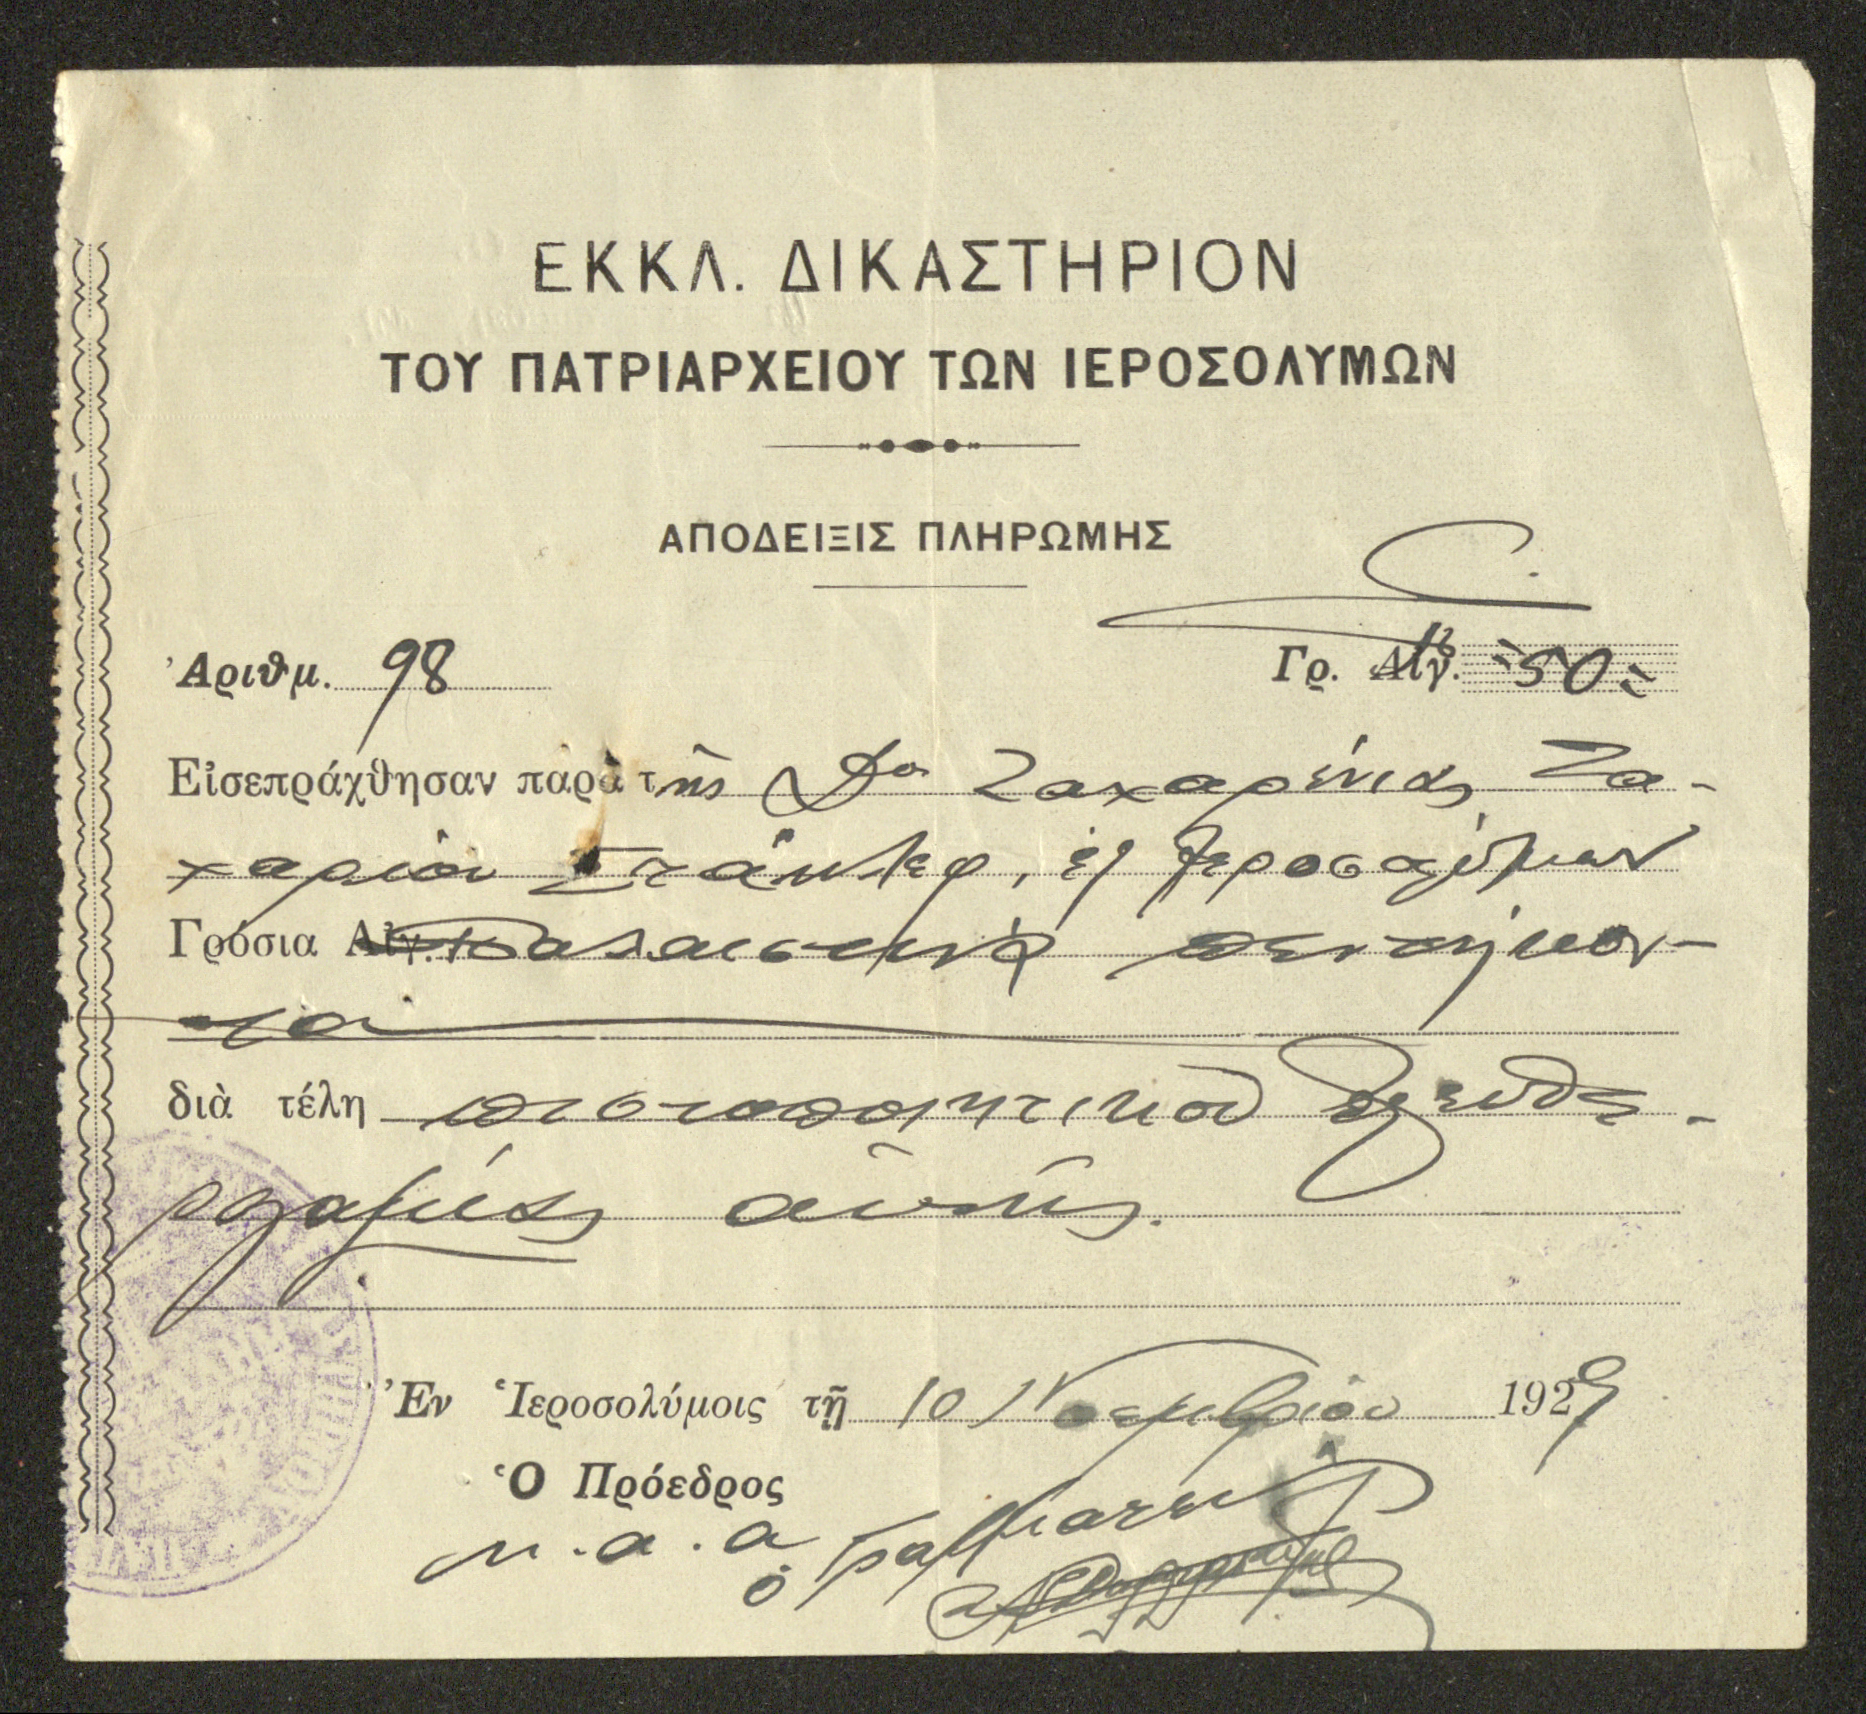 ΕΚΚΛ. ΔΙΚΑΣΤΗΡΙΟΝ
ΤΟΥ ΠΑΤΡΙΑΡΧΕΙΟΥ ΤΩΝ ΙΕΡΟΣΟΛΥΜΩΝ
ΑΠΟΔΕΙΞΙΣ ΠΛΗΡΩΜΗΣ
Ἀριθμ. 98
Γρ. Αἰγ. 50
Εἰσεπράχθησαν παρὰ τῆς Δος Ζαχαρένιας Ζα-
χαρίου Στάντεφ, ἐξ Ἱεροσολύμων
Γρόσια Αἰγ. Παλαιστινὰ πεντήκον-
τα
διὰ τέλη πιστοποιητικοῦ ἐλευθε-
ρογαμίας αὐτῆς.
Ἐν Ἱεροσολύμοις τῇ 10 Νοεμβρίου 1929
Ὁ Πρόεδρος
μ.α.α
ὁ Γραμματεὺς